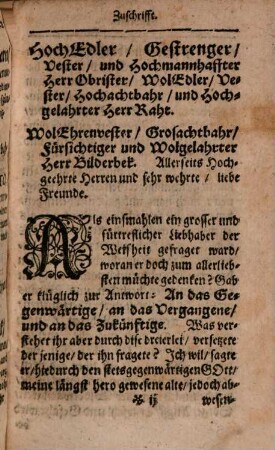 Zuschrifft.
HochEdler / Gestrenger /
Vester / und Hochmannhaffter
Herr Obrister / WolEdler / Ve-
ster / Hochachtbahr / und Hoch-
gelahrter Herr Raht.
WolEhrenvester / Grosachtbahr /
Fürsichtiger und Wolgelahrter
Herr Bilderbek. Allerseits Hoch-
geehrte Herren und sehr wehrte / liebe
Freunde.
Als einsmahlen ein grosser und
fürtreflicher Liebhaber der
Weisheit gefraget ward /
woran er doch zum allerlieb-
sten müchte gedenken? Gab
er klüglich zur Antwort: An das Ge-
genwärtige / an das Vergangene /
und an das Zukünftige. Was ver-
stehet ihr aber durch dise dreierlei / versetzte
der jenige / der ihn fragete? Ich wil / sagte
er / hiedurch den stetsgegenwärtigen GOtt /
meine längst hero gewesene alte / jedoch ab-
ij wesen-